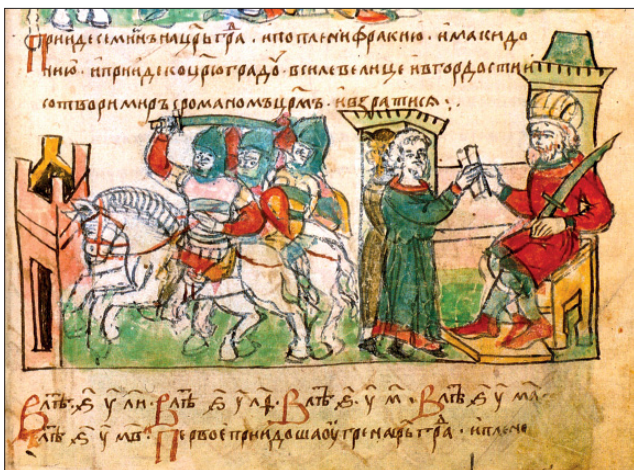 Прииде семи҃нъ на цр҃ьгра҃ . и поплени фракию . и макидо
нию . и прииде ко цр҃юградоу҃ . в силе велице и в гордости и
сотвори миръ с романомъ цр҃мъ . и взратися :
В лт҃ѣ . ѕ҃ у҃ ли . В лт҃ѣ ѕ҃ у҃ л҃ѳ . В лт҃ѣ . ѕ҃ . у҃ м҃ . В лт҃ѣ ѕ҃ у҃ ма
В лт҃ѣ ѕ҃ у҃ мв҃ . Первое приидоша оугре на цр҃ьгра҃ . и плене